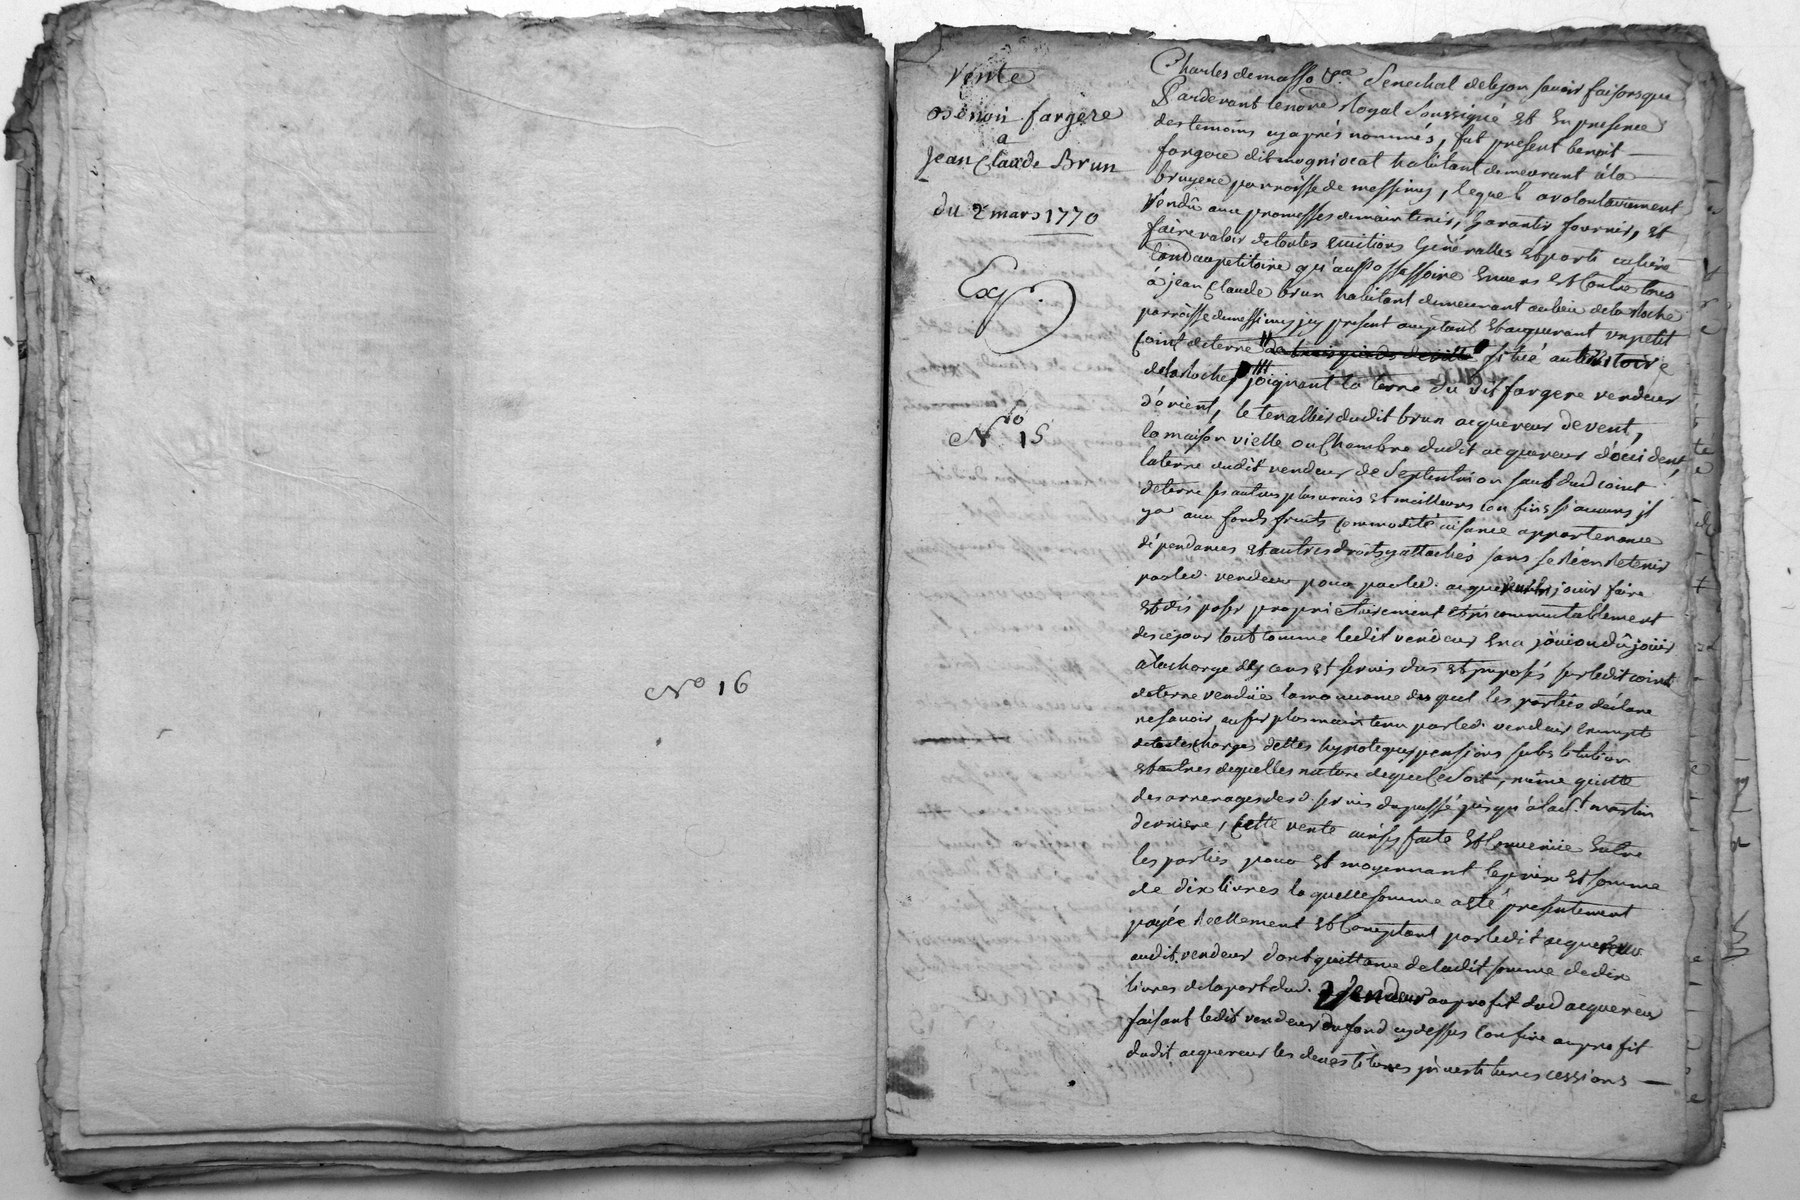 No 16
Vente
Benoit fargere
a
Jean Claude Brun
du 2 mars 1770
Exp.
No 15
Charles de masso &a Senechal de lyon savoir faisons que
Pardevant le no.re Royal Soussigné et En presence
des temoins cy après nommés, fut present benoit
fargere dit mogniocat habitant demeurant à la
bruyere parroisse de messimy, lequel a volontairement
Vendû aux promesses de maintenir, garantir fournir, et
faire valoir de toutes evictions Généralles et particulière
tand au petitoire qu'au possessoire Envers et Contre tous
à jean Claude brun habitant demeurant au lieu de la Roche
parroisse de messimy icy present acceptant et acquerant un petit
Coin de terre situé au territoire
de la Roche joignant la terre du dit fargere vendeur
d'orient, le tenallier dudit brun acquereur de vent,
la maison vielle ou Chambre dudit acquereur d'occident,
la terre dudit vendeur de Septentrion sauf dud coint
de terre ses autres plus vrais et meilleurs confins si aucuns il
ya aux fonds fruits Commodité aisance appartenance
dépendances et autres droits y attachés sans se Rien Retenir
par led. vendeur pour par led. acquereur jouir faire
et dis poser proprietairement et incommutablement
des ce jour tout comme ledit vendeur En a joui ou dû jouir
à la charge des cens et servis dus et imposés sur ledit coint
de terre vendüe la mouvance du quel les parties déclare
ne savoir au surplus maintenu par led. vendeur Exempt
de toutes Charges dettes hypoteques pensions substitution
et autres de quelles nature de quel ce soit, même quitte
des arrerages desd. servis du passé jusqu'à la s.t martin
derniere, Cette vente ainsy faite et Convenüe Entre
les parties pour et moyennant le prix et somme
de dix livres la quelle somme a été presentement
payée Reellement et Comptant par ledit acquereur
audit vendeur dont quittance de la dit somme de dix
livres de la part dud. Vendeur au profit dud acquereur
faisant ledit vendeur du fond cy dessus Confiné au profit
dudit acquereur les devestitures investitures cessions